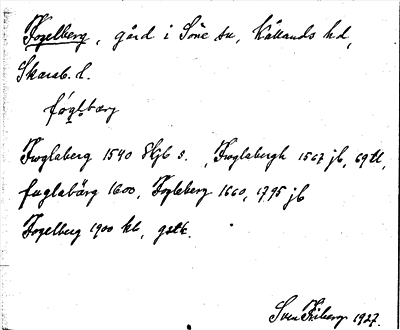 Fogelberg, gård i Söne sn, Kållands hd,
Skarab. l.
fógḷbærg
Fuglaberg 1540 Skjb s., Fuglabergh 1567 jb, 69 tl,
fuglabärg 1600, Fogleberg 1660, 1795 jb
Fogelberg 1900 kb, gstk.
Sven Friberg 1927.